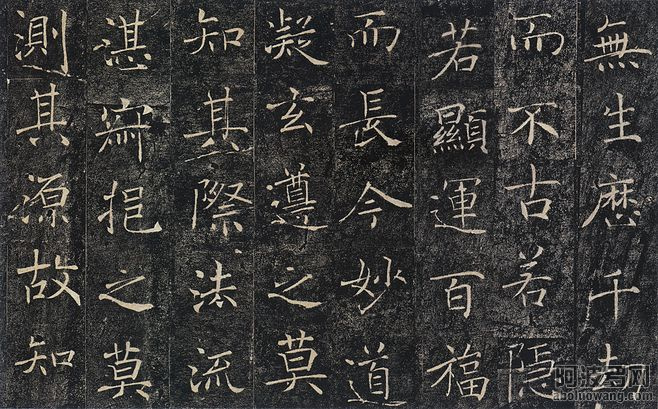 無生歷千
而不古若隱
若顯運百福
而長今妙道
凝玄遵之莫
知其際法流
湛寂挹之莫
測其源故知
阿波罗网
aboluowang.com